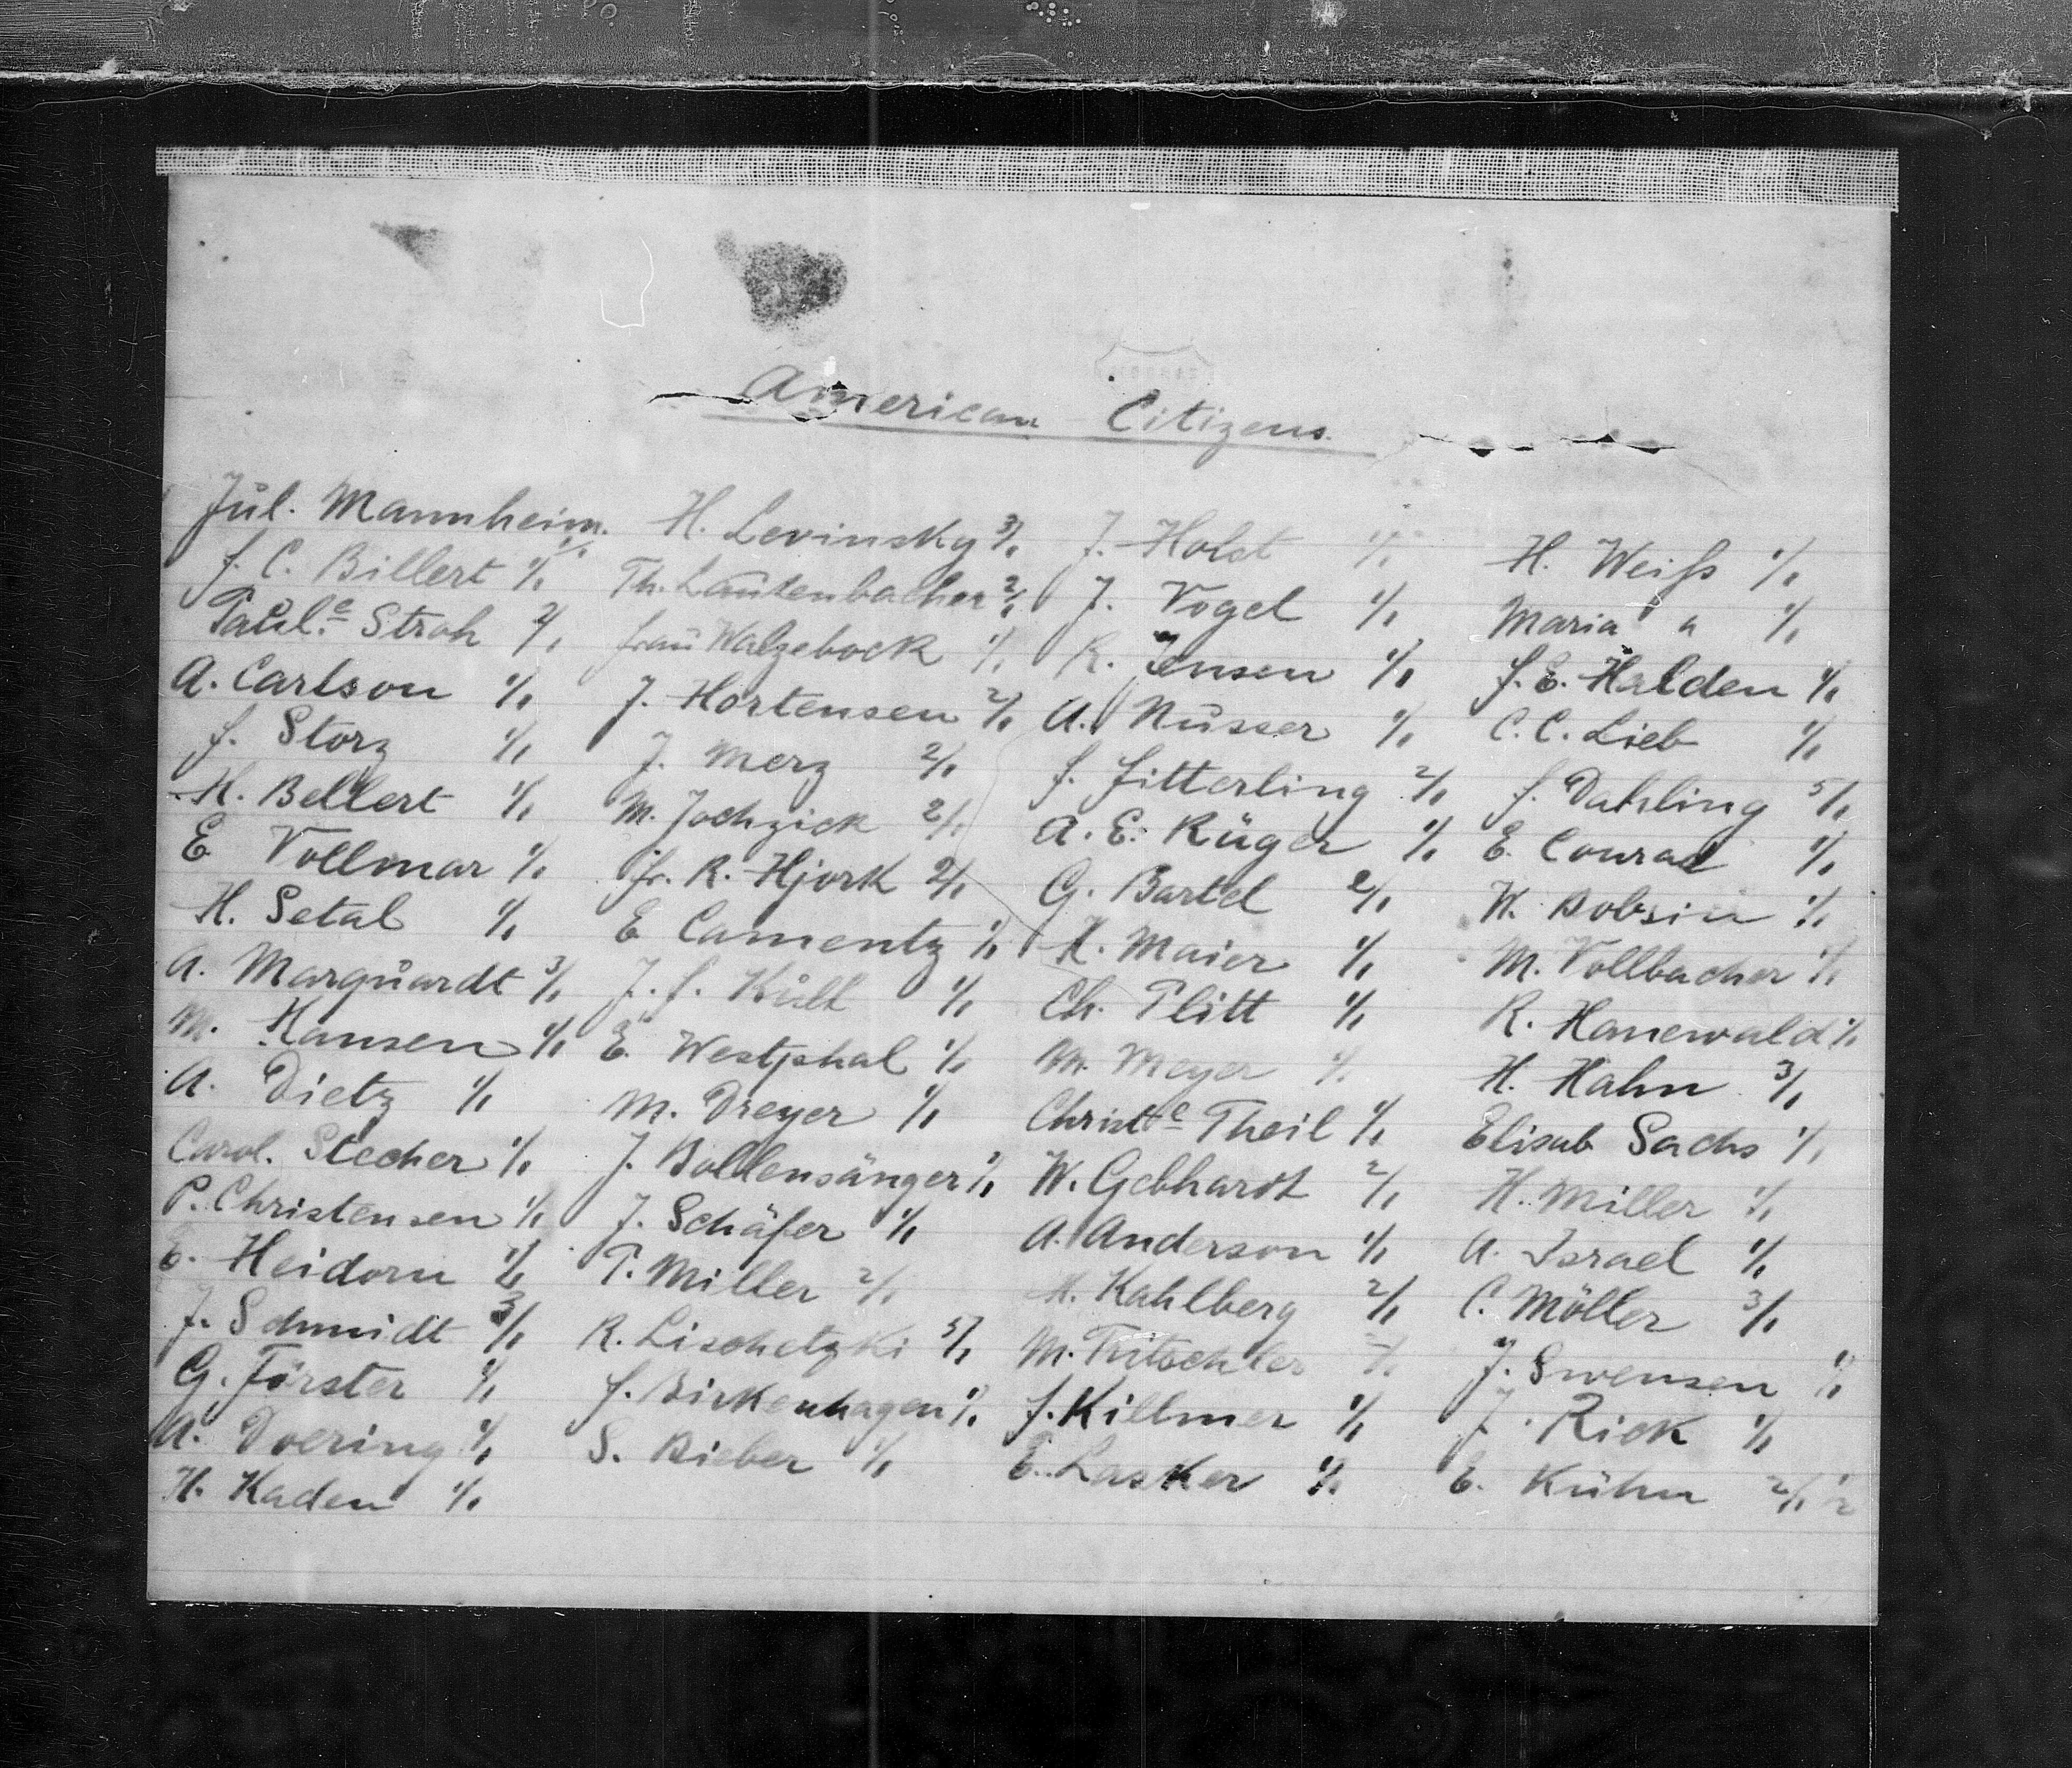 American Citizens.
Jul. Mannheim. 1/1
F. C. Billert 1/1
Paul.e Stroh 2/1
A. Carlson 1/1
F. Storz 1/1
H. Bellert 1/1
E Vollmar 1/1
H. Setal 1/1
A. Marquardt 3/1
M. Hansen 1/1
A. Dietz 1/1
Carol. Stecher 1/1
P. Christensen 1/1
E. Heidorn
J. Schmidt 3/1
G. Förster 1/1
A. Doering 1/1
H. Kaden 1/1
H. Levinsky 3/1
Th. Lautenbacher 2/1
Frau Walzebock 1/1
J. Hortensen 2/1
J. Merz 2/1
M. Jochzick 2/1
Fr. R. Hjork 2/1
E Camentz 1/1
J. F. Kull 1/1
E. Westphal 1/1
M. Dreyer 1/1
J. Bollensänger 1/1
J. Schäfer 1/1
P. Miller 2/1
R. Lischetzki 5/1
F. Birkenhagen 1/1
S. Bieber 1/1
J. Holst 1/1
J. Vogel 1/1
R. Jensen 1/1
A. Nusser 1/1
F. Fitterling 2/1
A. E. Rüger 1/1
G. Bartel 2/1
H. Maier 1/1
Ch. Plitt 1/1
M. Meyer 1/1
Christe Theil 1/1
W. Gebhardt 2/1
A. Anderson 1/1
H. Kahlberg 2/1
M. Tritschler
F. Killmer 1/1
E. Lasker 1/1
H. Weiß 1/1
Maria " 1/1
F. E. Halden 1/1
C. C. Lieb 1/1
F. Dahling 5/1
E. Conrad 1/1
W. Bobsin 1/1
M. Vollbacher 1/1
R. Hanewald 1/1
H. Hahn 3/1
Elisab Sachs 1/1
H. Miller 1/1
A. Israel 1/1
C. Möller 3/1
J. Swensen 1/1
J. Rick 1/1
E. Kühn 2/1 1/2